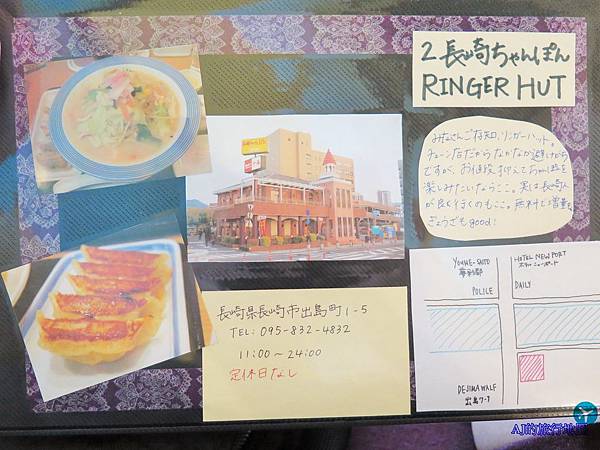 2 長崎ちゃんぽん
RINGER HUT
みなさんご存知、リンガーハット。
チェーン店だからなかなか避けがち
ですが、お値段抑えてちゃんぽんを
楽しみたいならここ。実は長崎人
が良く行くのもここ。無料で増量。
ぎょうざもgood!
長崎県長崎市出島町1-5
TEL: 095-832-4832
11:00～24:00
定休日なし
HOTEL NEW PORT
ホテルニューポート
POLICE
DAILY
DEJIMA WALF
出島ワーフ
AJ的旅行地圖